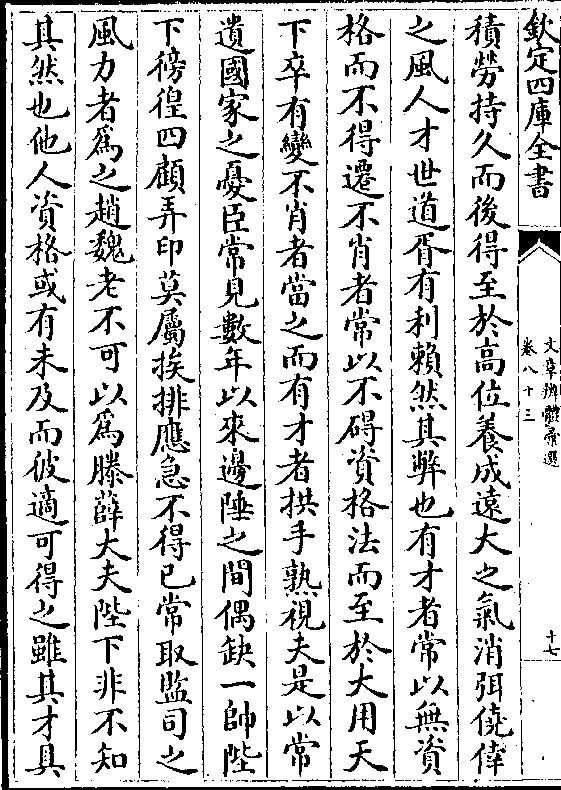 欽定四庫全書
文章辨體彚選
卷八十三
十七
積勞持久而後得至於高位養成遠大之氣消弭僥倖
之風人才世道胥有利賴然其弊也有才者常以無資
格而不得遷不肖者常以不碍資格法而至於大用天
下卒有變不肖者當之而有才者拱手熟視夫是以常
遺國家之憂臣常見數年以來邊陲之間偶缺一帥陛
下徬徨四顧弄印莫屬挨排應急不得已常取監司之
風力者爲之趙魏老不可以爲滕薛大夫陛下非不知
其然也他人資格或有未及而彼適可得之雖其才具